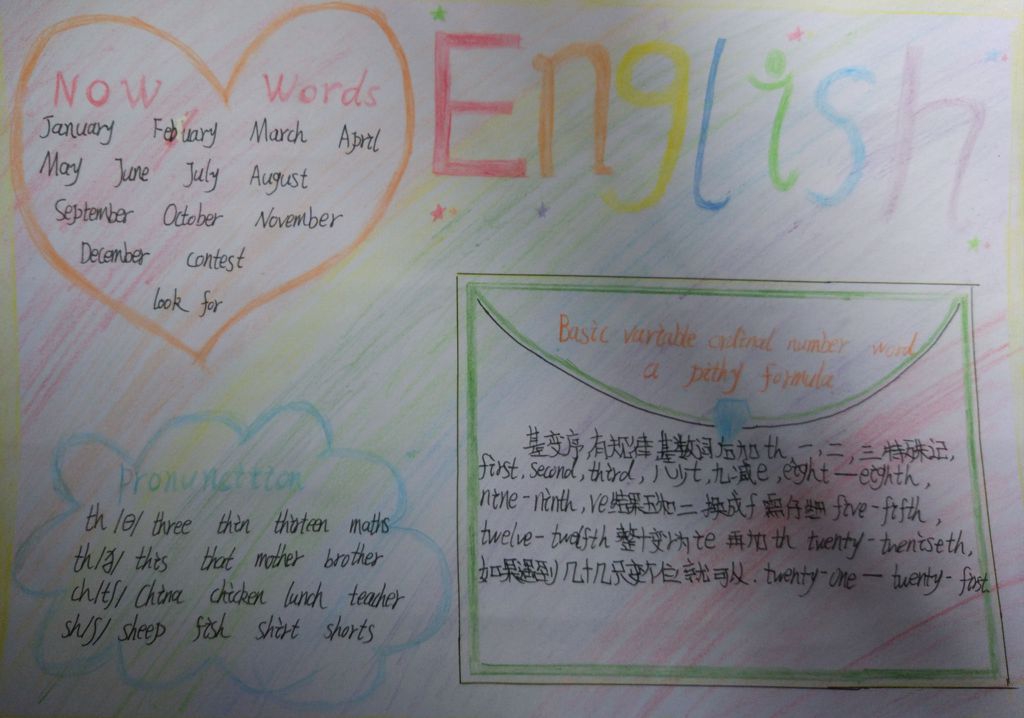 English
Now Words
January Febuary March April
May June July August
September October November
December contest
look for
Basic variable ordinal number word
a pithy formula
基变序,有规律 基数词后加th,一,二,三特殊记,
first, second, third, 八少t,九减e, eight—eighth,
nine-ninth, ve结果 换成f five-fifth,
twelve-twelfth 整十变y为ie 再加th twenty-twentieth,
如果遇到几十几只变个位就可以. twenty-one — twenty-first
Pronunction
th /θ/ three thin thirteen maths
th/ð/ this that mother brother
ch/tʃ/ China chicken lunch teacher
sh/ʃ/ sheep fish shirt shorts